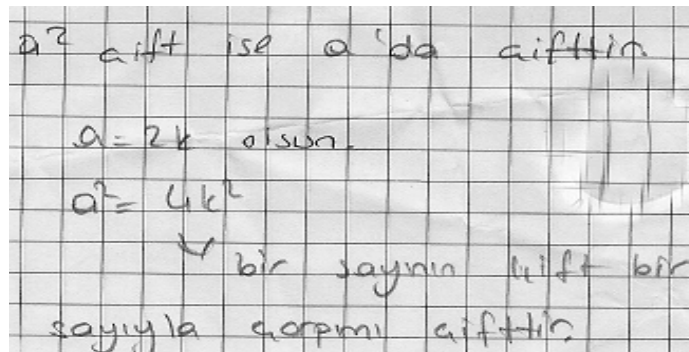 a² çift ise a'da çifttir.
a = 2k olsun.
a² = 4k²
bir sayının çift bir
sayıyla çarpımı çifttir.